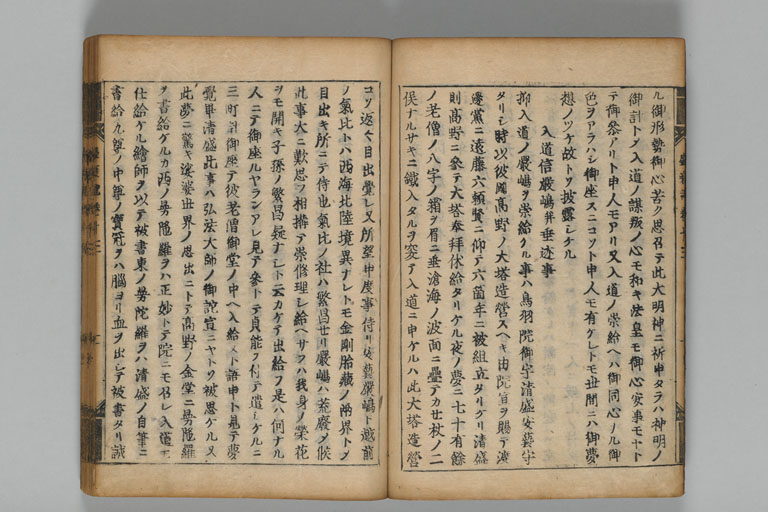 ル御形勢御心苦ク思召テ此大明神ニ祈申タラハ神明ノ
御計トソ入道ノ謀叛ノ心モ和キ法皇モ御心安事モヤト
テ御參アリト申人モアリ又入道ノ崇給ヘハ御同心ノル御
色ヲアラハシ御座スニコソト申人モ有ケレトモ世間ニハ御夢
想ノツケ故トソ披露シケル
入道信嚴嶋幷垂迹事
抑入道ノ嚴嶋ヲ崇給ケル事ハ鳥羽院御宇清盛安藝守
タリシ時以彼國高野ノ大塔造營スヘキ由院宣ヲ賜テ渡
邊黨ニ遠藤六頼賢ニ仰テ六箇年ニ被組立タリケリ清盛
則高野ニ參テ大塔奉拜休給タリケル夜ノ夢ニ七十有餘
ノ老僧ノ八字ノ霜ヲ眉ニ垂滄海ノ波面ニ疊テカセ杖ノ二
俣ナルサキニ鐵入タルヲ突テ入道ニ申ケルハ此大塔造營
コソ返〻目出覺レ又所望申度事侍リ安藝嚴嶋ト越前
ノ氣比トハ西海北陸境異ナレトモ金剛胎藏ノ兩界トソ
目出キ所ニテ侍也氣比ノ社ハ繁昌セリ嚴嶋ハ荒廢ノ候
此事大ニ歎思ソ相構テ崇修理シ給ヘサラハ我身ノ榮花
ヲモ開キ子孫ノ繁昌疑ナレト云カケテ出給フ是ハ何ナル
人ニテ御座ルヤランアレ見テ參トテ貞能ヲ付テ遣シケルニ
三町計御座テ彼老僧御堂ノ中ヘ入給ヌト語申ト見テ夢
覺畢清盛此事ハ弘法大師ノ御詫宣ニヤトソ被思ケル又
此夢ニ驚キ娑婆世界ノ思出ニトテ高野ノ金堂ニ曼陀羅
ヲ書給ケルカ西ノ曼陀羅ヲハ正妙トテ院ニモ召レ入道モ
仕給ケル繪師ヲ以テ被書東ノ曼陀羅ヲハ清盛ノ自筆ニ
書給九尊ノ中尊ノ寶冠ヲハ腦ヨリ血ヲ出シテ被書タリ誠